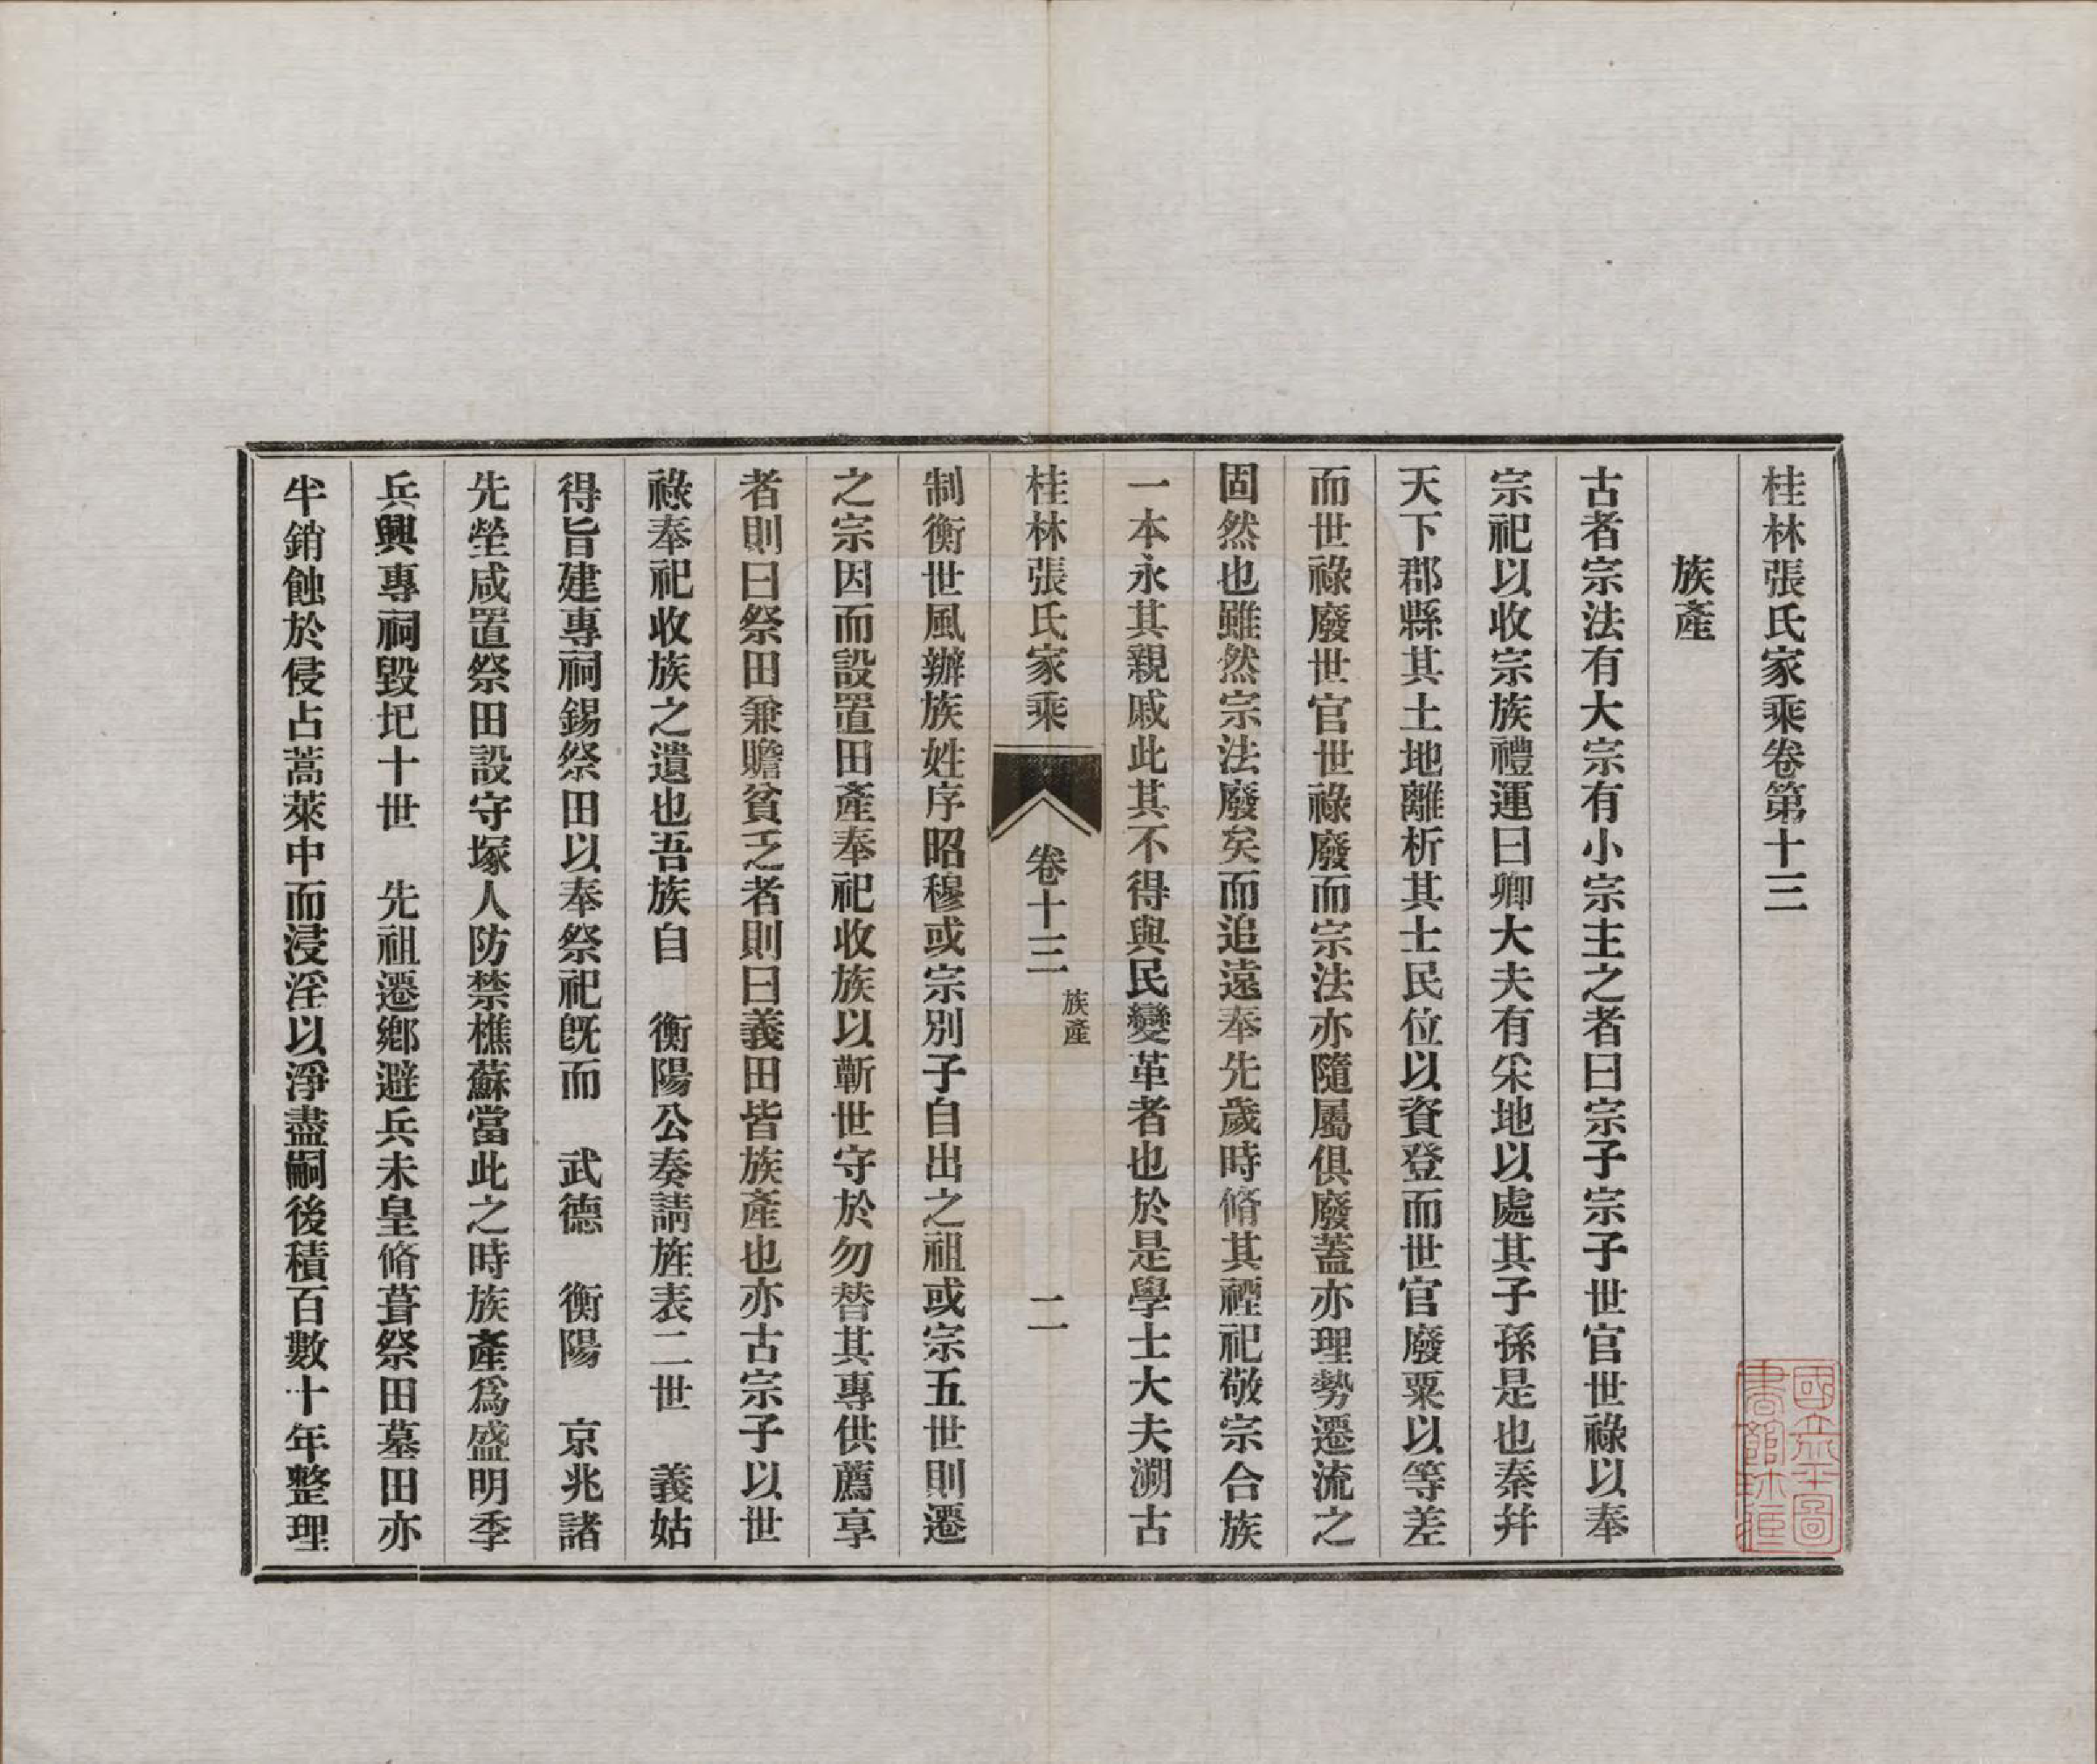 桂林張氏家乘卷第十三
族產
古者宗法有大宗有小宗主之者曰宗子宗子世官世祿以奉
宗祀以收宗族禮運曰卿大夫有采地以處其子孫是也秦并
天下郡縣其土地離析其士民位以資登而世官廢粟以等差
而世祿廢世官世祿廢而宗法亦隨屬俱廢蓋亦理勢遷流之
固然也雖然宗法廢矣而追遠奉先歲時脩其禋祀敬宗合族
一本永其親戚此其不得與民變革者也於是學士大夫溯古
桂林張氏家乘 卷十三 族產 一
制衡世風辦族姓序昭穆或宗別子自出之祖或宗五世則遷
之宗因而設置田產奉祀收族以蘄世守於勿替其專供薦享
者則曰祭田兼贍貧乏者則曰義田皆族產也亦古宗子以世
祿奉祀收族之遺也吾族自 衡陽公奏請旌表二世 義姑
得旨建專祠錫祭田以奉祭祀既而 武德 衡陽 京兆諸
先塋咸置祭田設守塚人防禁樵蘇當此之時族產爲盛明季
兵興專祠毀圮十世 先祖遷鄉避兵未皇脩葺祭田墓田亦
半銷蝕於侵占蒿萊中而浸淫以淨盡嗣後積百數十年整理
國立北平圖書館珍藏